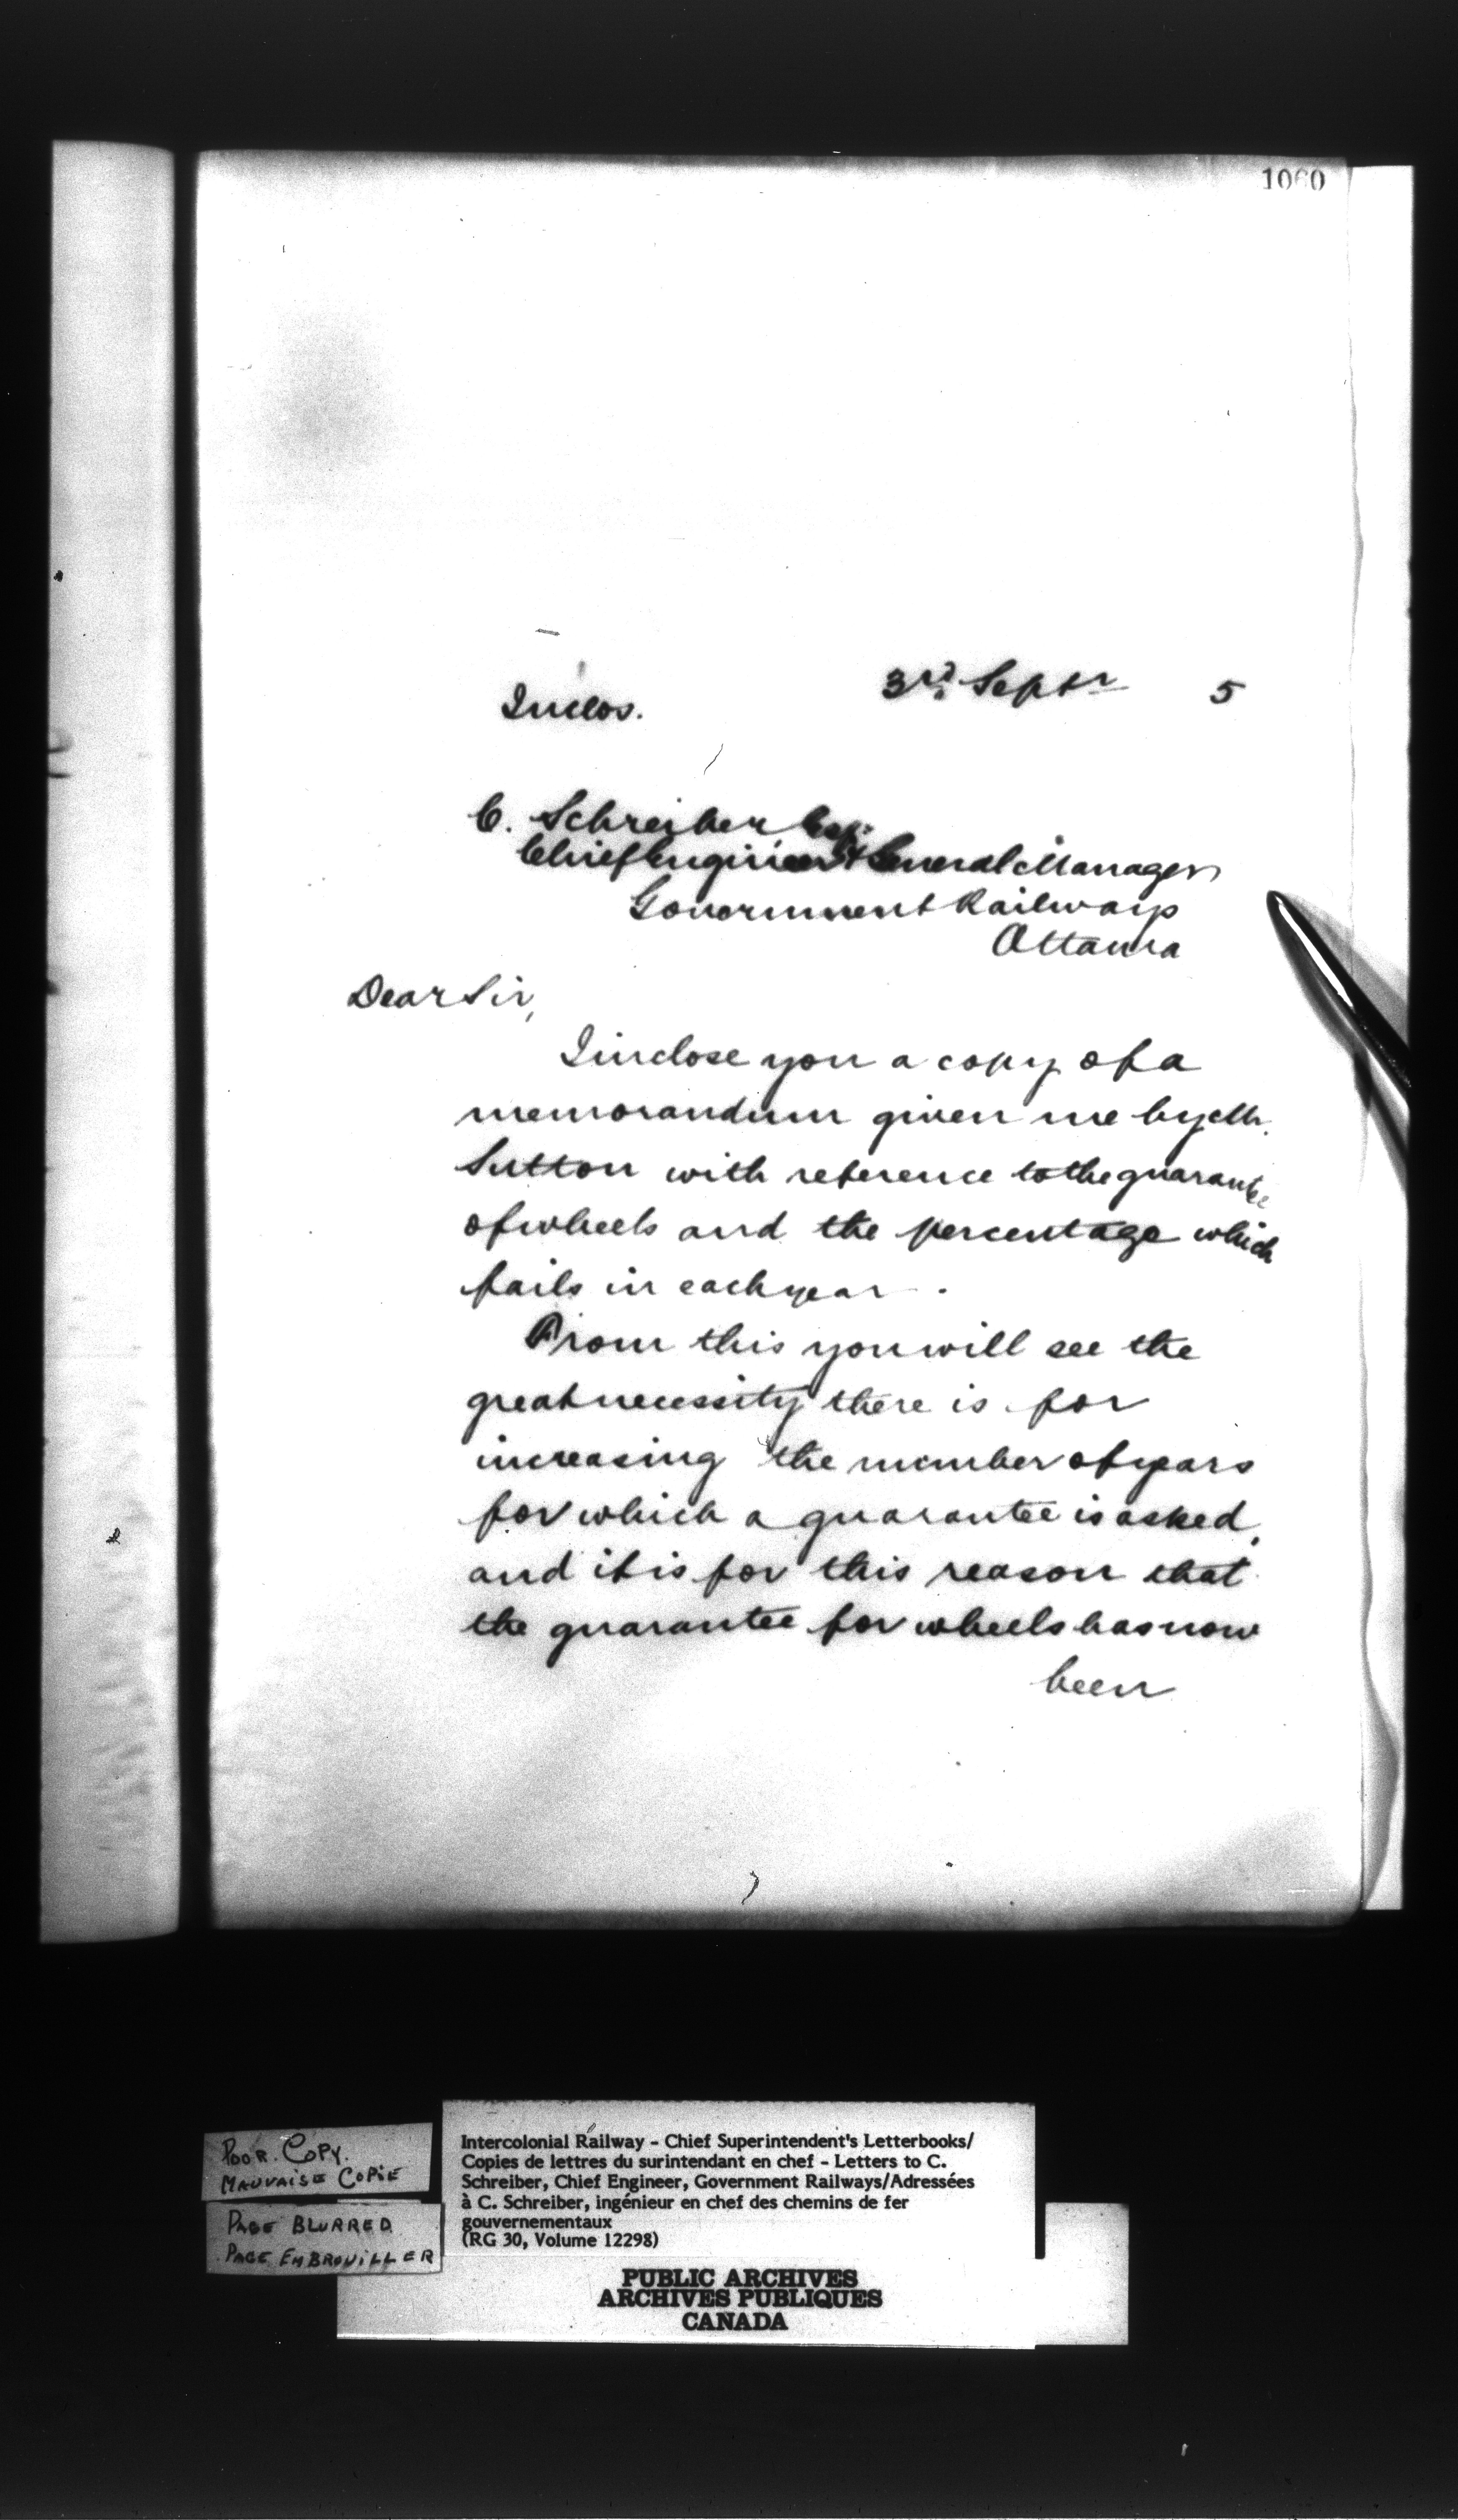 1060
Inclos.
3rd Septr 5
C. Schreiber Esq.
Chief Engineer & General Manager
Government Railways
Ottawa
Dear Sir,
I inclose you a copy of a
memorandum given me by Mr.
Sutton with reference to the guarantee
of wheels and the percentage which
fails in each year.
From this you will see the
great necessity there is for
increasing the number of years
for which a guarantee is asked,
and it is for this reason that
the guarantee for wheels has now
been
POOR COPY.
MAUVAISE COPIE
PAGE BLURRED
PAGE EMBROUILLER
Intercolonial Railway - Chief Superintendent's Letterbooks/
Copies de lettres du surintendant en chef - Letters to C.
Schreiber, Chief Engineer, Government Railways/Adressées
à C. Schreiber, ingénieur en chef des chemins de fer
gouvernementaux
(RG 30, Volume 12298)
PUBLIC ARCHIVES
ARCHIVES PUBLIQUES
CANADA